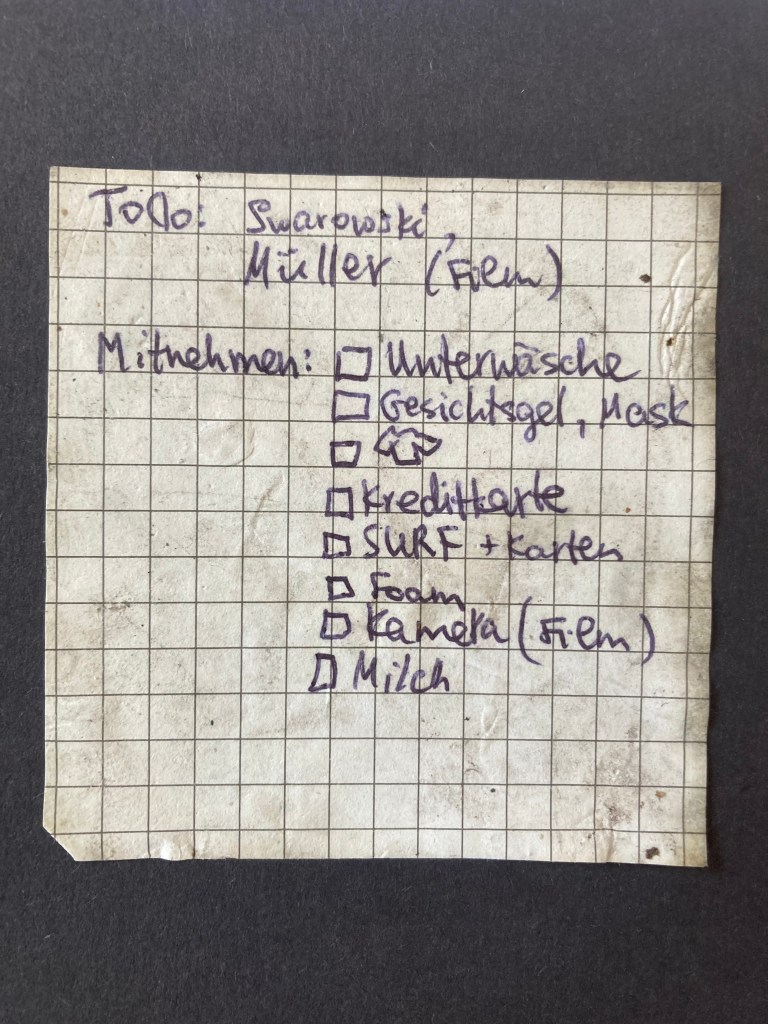 ToDo: Swarowski,
Müller (Film)
Mitnehmen: Unterwäsche
Gesichtsgel, Mask
Kreditkarte
SURF + Karten
Foam
Kamera (Film)
Milch